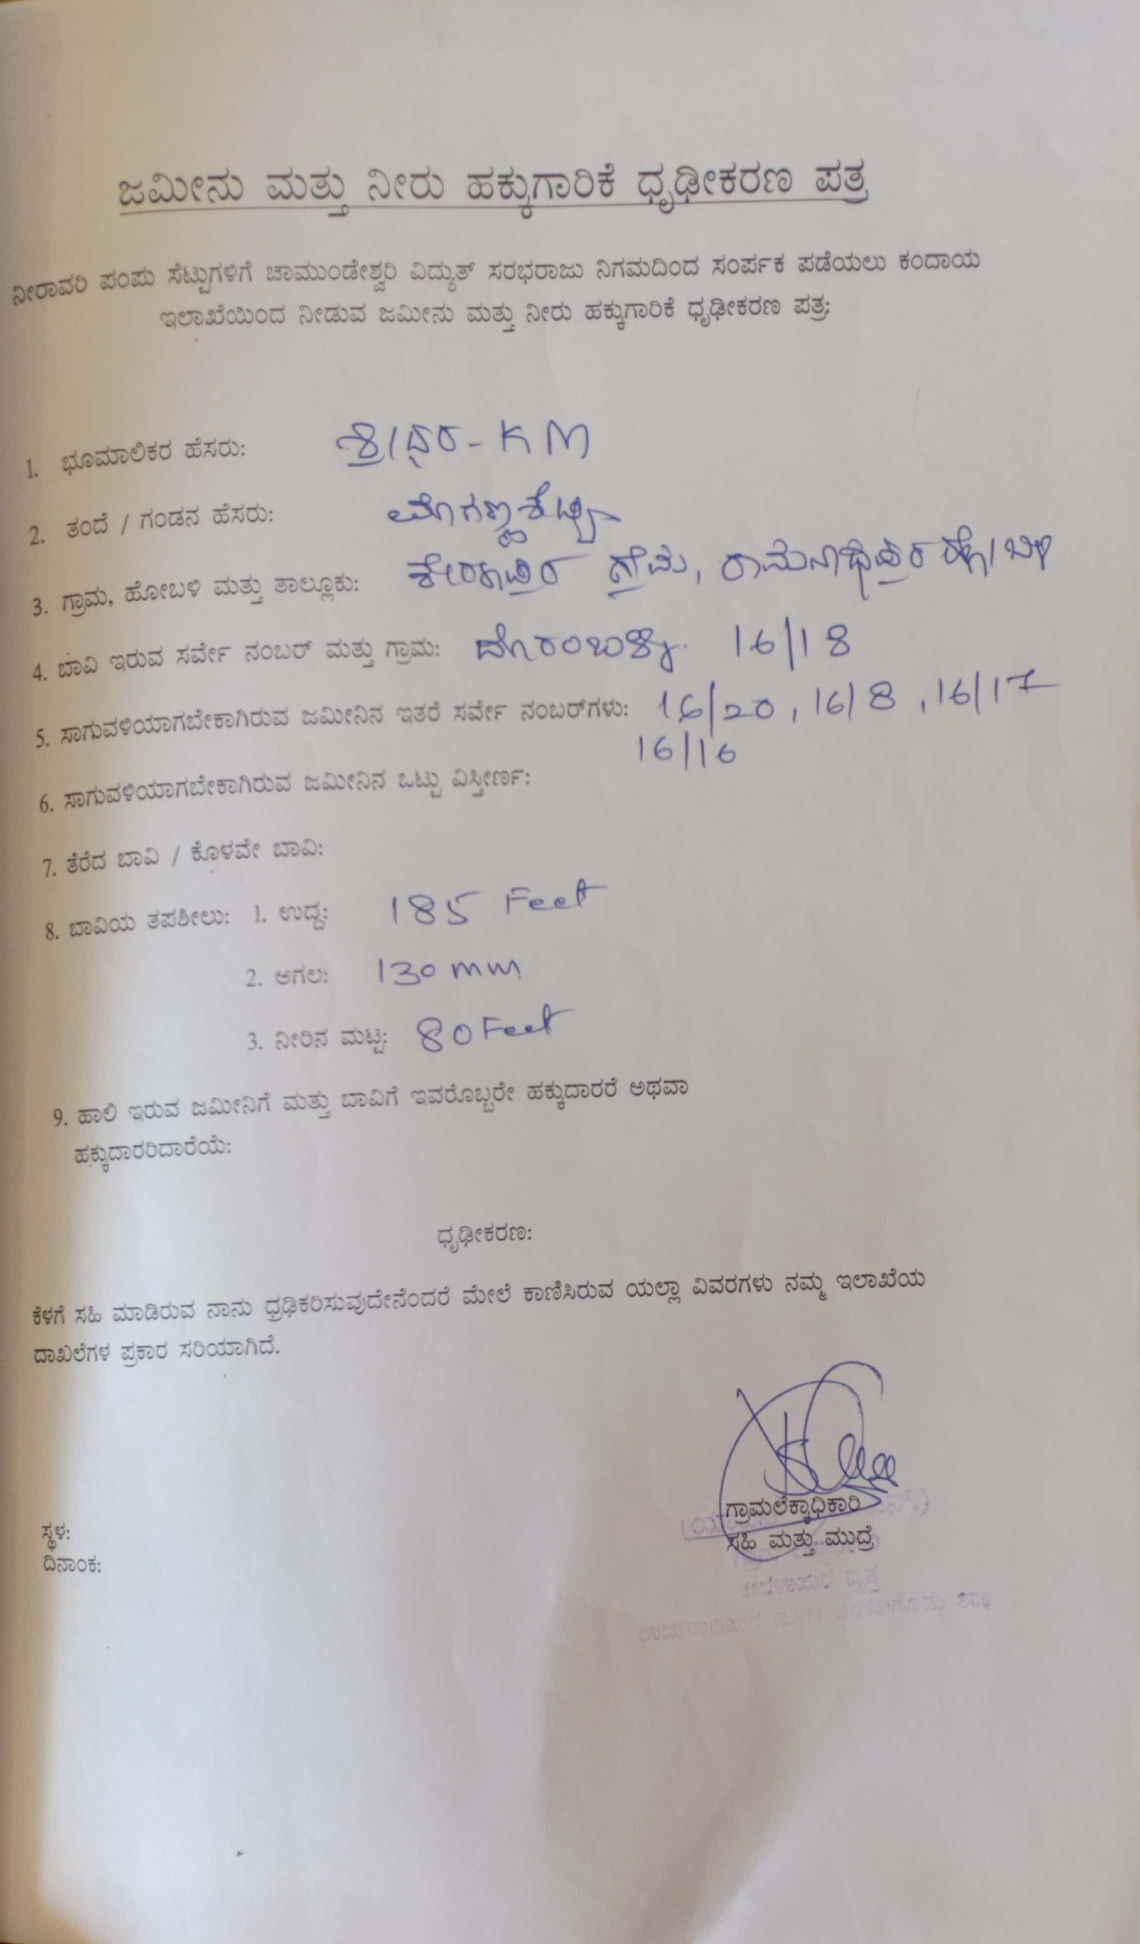 ಜಮೀನು ಮತ್ತು ನೀರು ಹಕ್ಕುಗಾರಿಕೆ ಧೃಢೀಕರಣ ಪತ್ರ
ನೀರಾವರಿ ಪಂಪು ಸೆಟ್ಟುಗಳಿಗೆ ಚಾಮುಂಡೇಶ್ವರಿ ವಿದ್ಯುತ್ ಸರಭರಾಜು ನಿಗಮದಿಂದ ಸಂರ್ಪಕ ಪಡೆಯಲು ಕಂದಾಯ
ಇಲಾಖೆಯಿಂದ ನೀಡುವ ಜಮೀನು ಮತ್ತು ನೀರು ಹಕ್ಕುಗಾರಿಕೆ ಧೃಢೀಕರಣ ಪತ್ರ:
1. ಭೂಮಾಲಿಕರ ಹೆಸರು: ಶ್ರೀಧರ - K M
2. ತಂದೆ / ಗಂಡನ ಹೆಸರು:
3. ಗ್ರಾಮ, ಹೋಬಳಿ ಮತ್ತು ತಾಲ್ಲೂಕು: ಗ್ರಾಮ, ರಾಮನಾಥಪುರ ಹೋಬಳಿ
4. ಬಾವಿ ಇರುವ ಸರ್ವೇ ನಂಬರ್ ಮತ್ತು ಗ್ರಾಮ: 16/18
5. ಸಾಗುವಳಿಯಾಗಬೇಕಾಗಿರುವ ಜಮೀನಿನ ಇತರೆ ಸರ್ವೇ ನಂಬರ್‌ಗಳು: 16/20, 16/8, 16/17
16/16
6. ಸಾಗುವಳಿಯಾಗಬೇಕಾಗಿರುವ ಜಮೀನಿನ ಒಟ್ಟು ವಿಸ್ತೀರ್ಣ:
7. ತೆರೆದ ಬಾವಿ / ಕೊಳವೇ ಬಾವಿ:
8. ಬಾವಿಯ ತಪಶೀಲು: 1. ಉದ್ದ: 185 Feet
2. ಅಗಲ: 130 mm
3. ನೀರಿನ ಮಟ್ಟ: 80 Feet
9. ಹಾಲಿ ಇರುವ ಜಮೀನಿಗೆ ಮತ್ತು ಬಾವಿಗೆ ಇವರೊಬ್ಬರೇ ಹಕ್ಕುದಾರರೆ ಅಥವಾ
ಹಕ್ಕುದಾರರಿದಾರೆಯೆ:
ಧೃಢೀಕರಣ:
ಕೆಳಗೆ ಸಹಿ ಮಾಡಿರುವ ನಾನು ಧ್ರಢಿಕರಿಸುವುದೇನೆಂದರೆ ಮೇಲೆ ಕಾಣಿಸಿರುವ ಯಲ್ಲಾ ವಿವರಗಳು ನಮ್ಮ ಇಲಾಖೆಯ
ದಾಖಲೆಗಳ ಪ್ರಕಾರ ಸರಿಯಾಗಿದೆ.
ಗ್ರಾಮಲೆಕ್ಕಾಧಿಕಾರಿ
ಸ್ಥಳ:
ಸಹಿ ಮತ್ತು ಮುದ್ರೆ
ದಿನಾಂಕ: